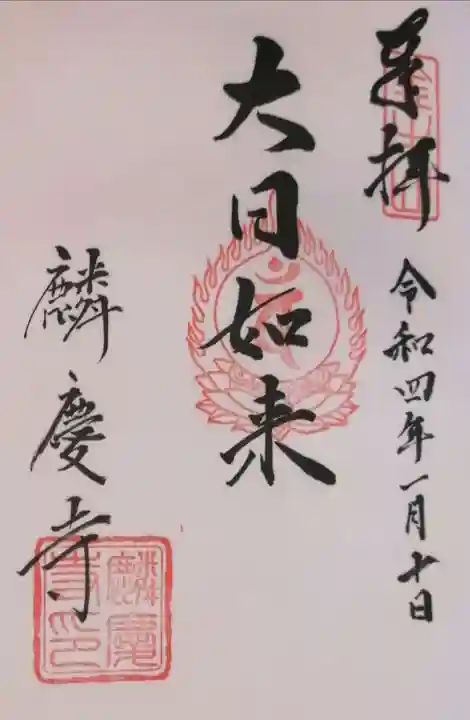 奉拝
令和四年一月十日
大日如来
麟慶寺
麟慶寺印